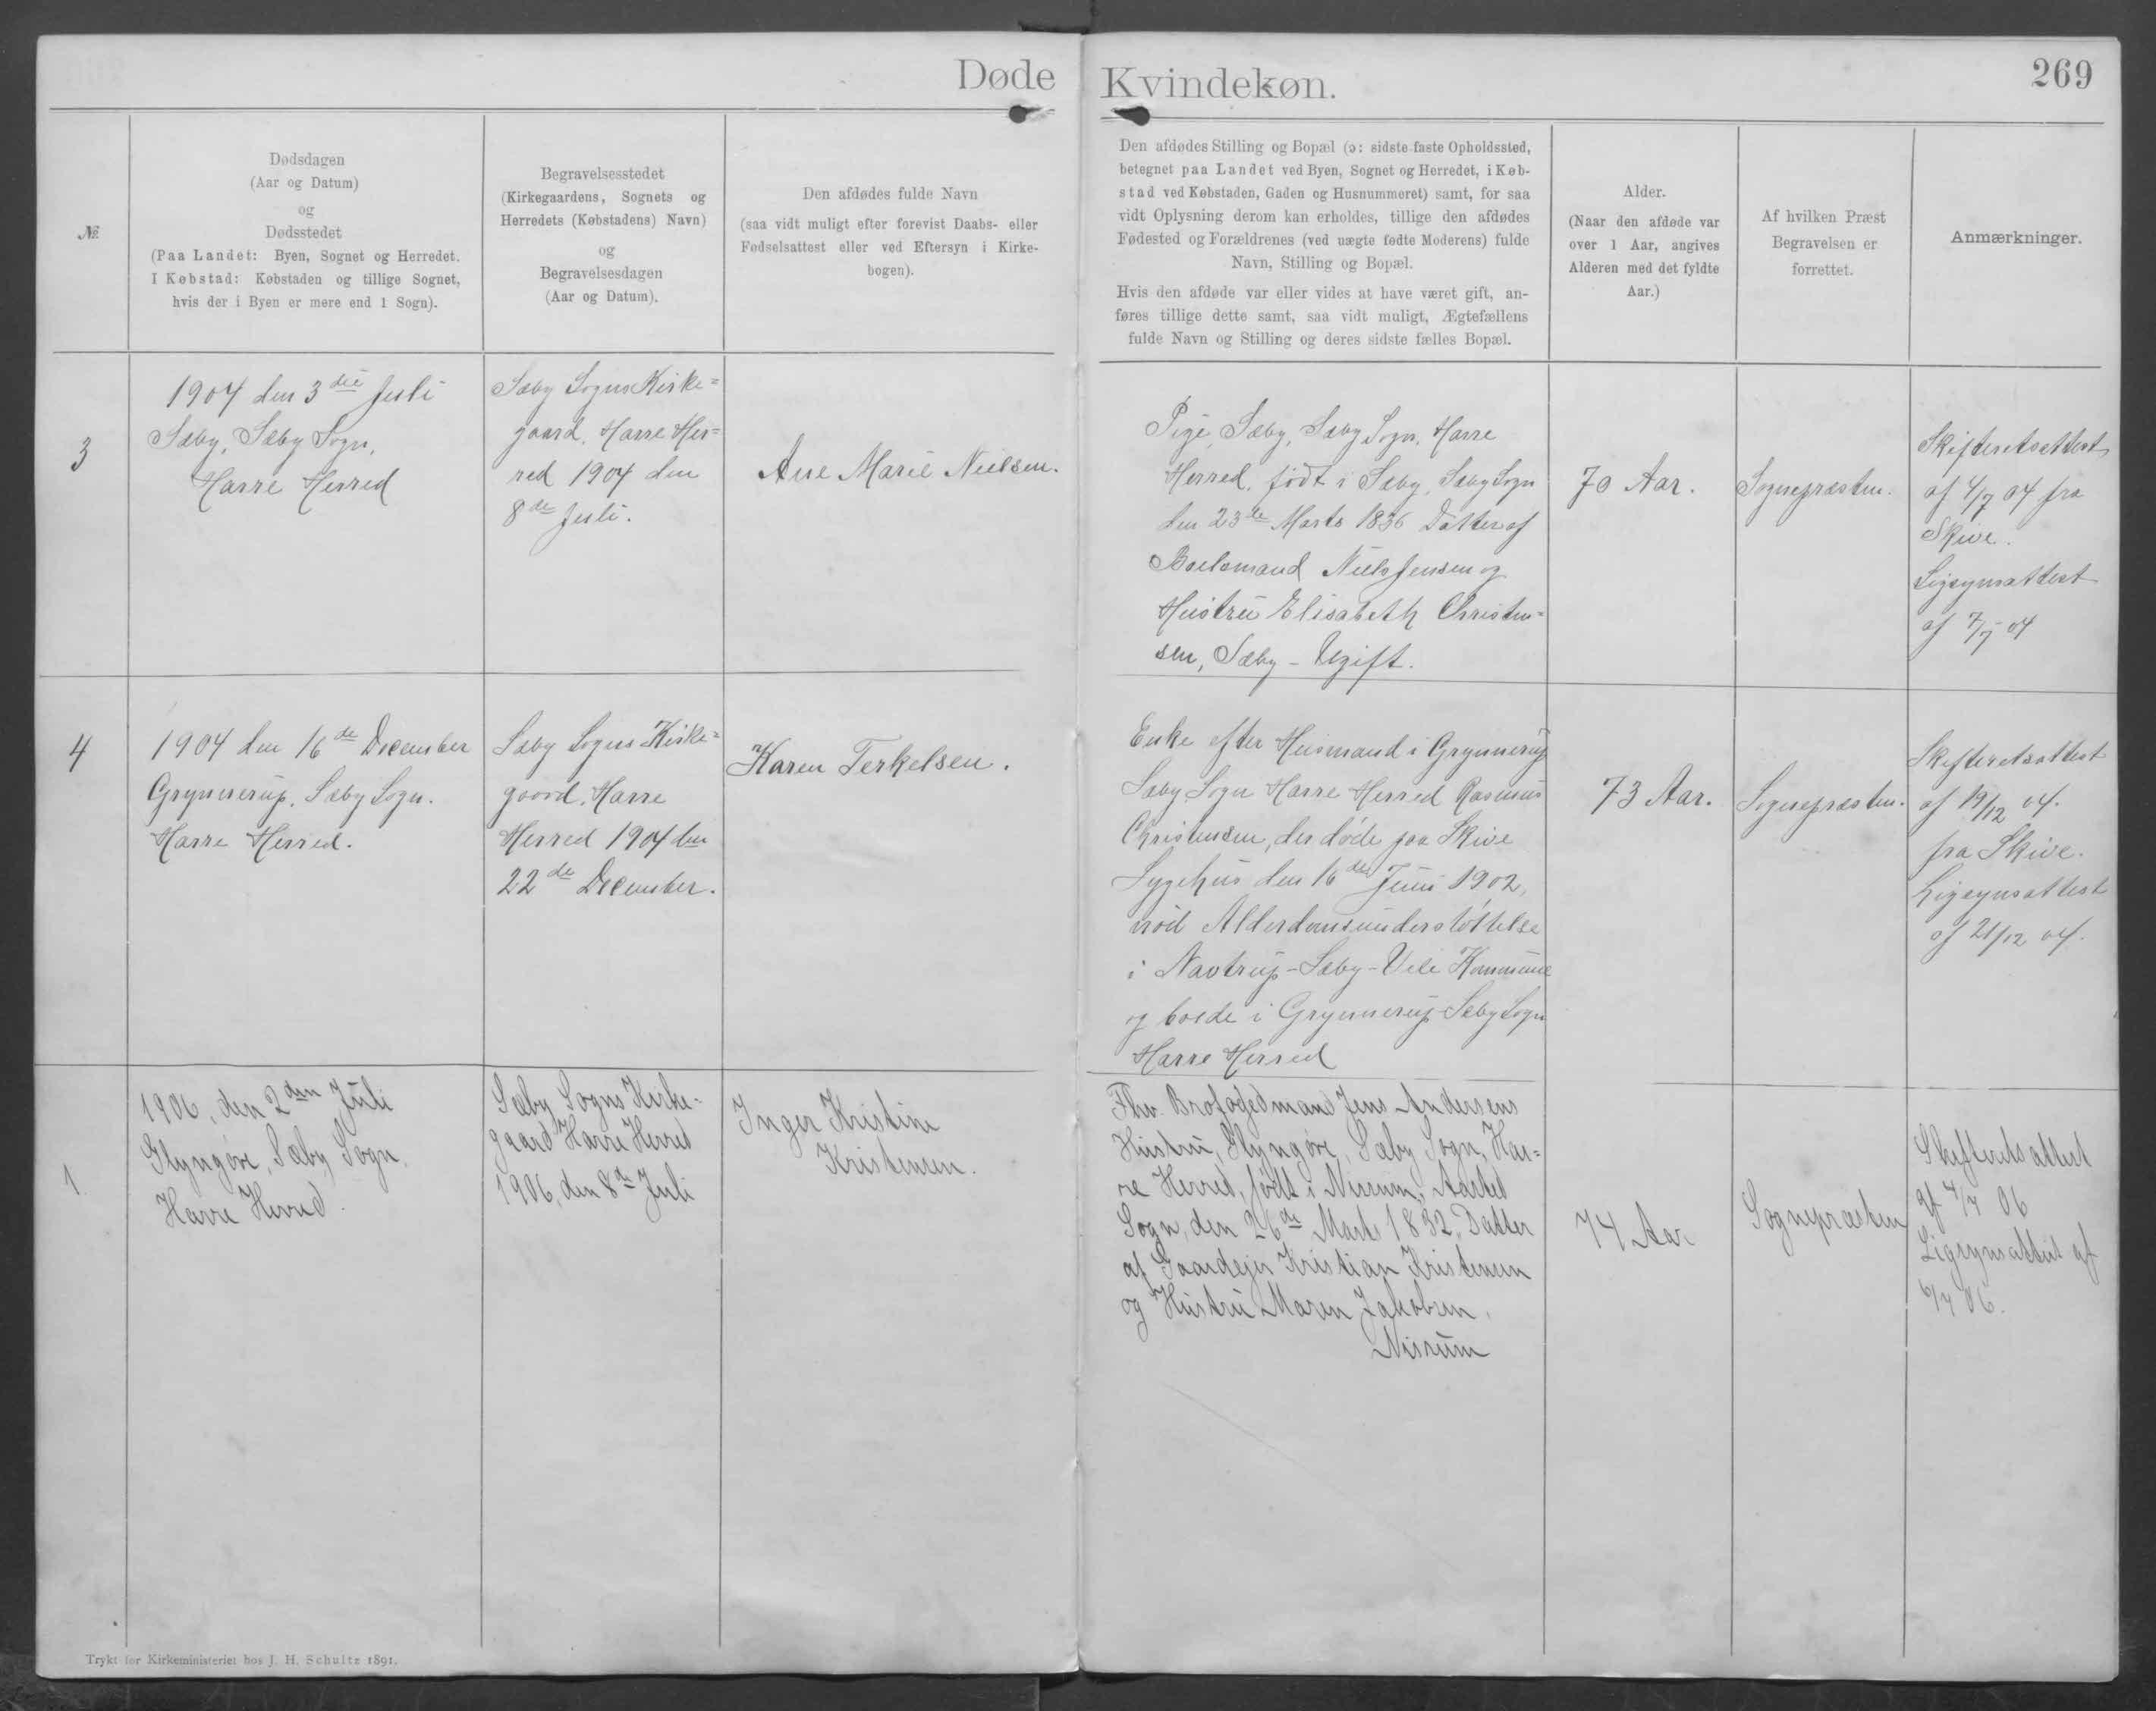 Døde Kvindekøn.
269
№
Dødsdagen
(Aar og Datum)
og
Dødsstedet
(Paa Landet: Byen, Sognet og Herredet.
I Købstad: Købstaden og tillige Sognet,
hvis der i Byen er mere end 1 Sogn).
Begravelsesstedet
(Kirkegaardens, Sognets og
Herredets (Købstadens) Navn)
og
Begravelsesdagen
(Aar og Datum).
Den afdødes fulde Navn
(saa vidt muligt efter forevist Daabs- eller
Fødselsattest eller ved Eftersyn i Kirke-
bogen).
Den afdødes Stilling og Bopæl (ɔ: sidste faste Opholdssted,
betegnet paa Landet ved Byen, Sognet og Herredet, i Køb-
stad ved Købstaden, Gaden og Husnummeret) samt, for saa
vidt Oplysning derom kan erholdes, tillige den afdødes
Fødested og Forældrenes (ved uægte fødte Moderens) fulde
Navn, Stilling og Bopæl.
Hvis den afdøde var eller vides at have været gift, an-
føres tillige dette samt, saa vidt muligt, Ægtefællens
fulde Navn og Stilling og deres sidste fælles Bopæl.
Alder.
(Naar den afdøde var
over 1 Aar, angives
Alderen med det fyldte
Aar.)
Af hvilken Præst
Begravelsen er
forrettet.
Anmærkninger.
3
1904 den 3die Juli
Sæby, Sæby Sogn,
Harre Herred
Sæby Sogns Kirke=
gaard, Harre Her=
red 1904 den
8de Juli.
Ane Marie Nielsen.
Pige, Sæby, Sæby Sogn, Harre
Herred, født i Sæby, Sæby Sogn
den 23de Marts 1836 Datter af
Boelsmand Niels Jensen og
Hustru Elisabeth Christen=
sen, Sæby - Ugift.
70 Aar.
Sognepræsten.
Skifteretsattest
af 4/7 04 fra
Skive.
Ligsynsattest
af 7/7 04
4
1904 den 16de December
Grynnerup, Sæby Sogn.
Harre Herred.
Sæby Sogns Kirke=
gaard, Harre
Herred 1904 den
22de December.
Karen Terkelsen.
Enke efter Husmand i Grynnerup
Sæby Sogn Harre Herred Rasmus
Christensen, der døde paa Skive
Sygehus den 16de Juni 1902,
nød Alderdomsunderstøttelse
i Nautrup-Sæby-Vile Kommune
og boede i Grynnerup Sæby Sogn
Harre Herred
73 Aar.
Sognepræsten.
Skifteretsattest
af 19/12 04.
fra Skive.
Ligsynsattest
af 21/12 04.
1.
1906, den 2den Juli
Glyngøre, Sæby Sogn,
Harre Herred.
Sæby Sogns Kirke-
gaard Harre Herred
1906, den 8de Juli
Inger Kristine
Kristensen.
Fhv. Brofogedmand Jens Andersens
Hustru, Glyngøre, Sæby Sogn, Har=
re Herred, født i Nissum, Aasted
Sogn, den 26de Marts 1832, Datter
af Gaardejer Kristian Kristensen
og Hustru Maren Jakobsen,
Nissum
74 Aar
Sognepræsten
Skifteretsattest
af 4/7 06
Ligsynsattest af
6/7 06.
Trykt for Kirkeministeriet hos J. H. Schultz 1891.